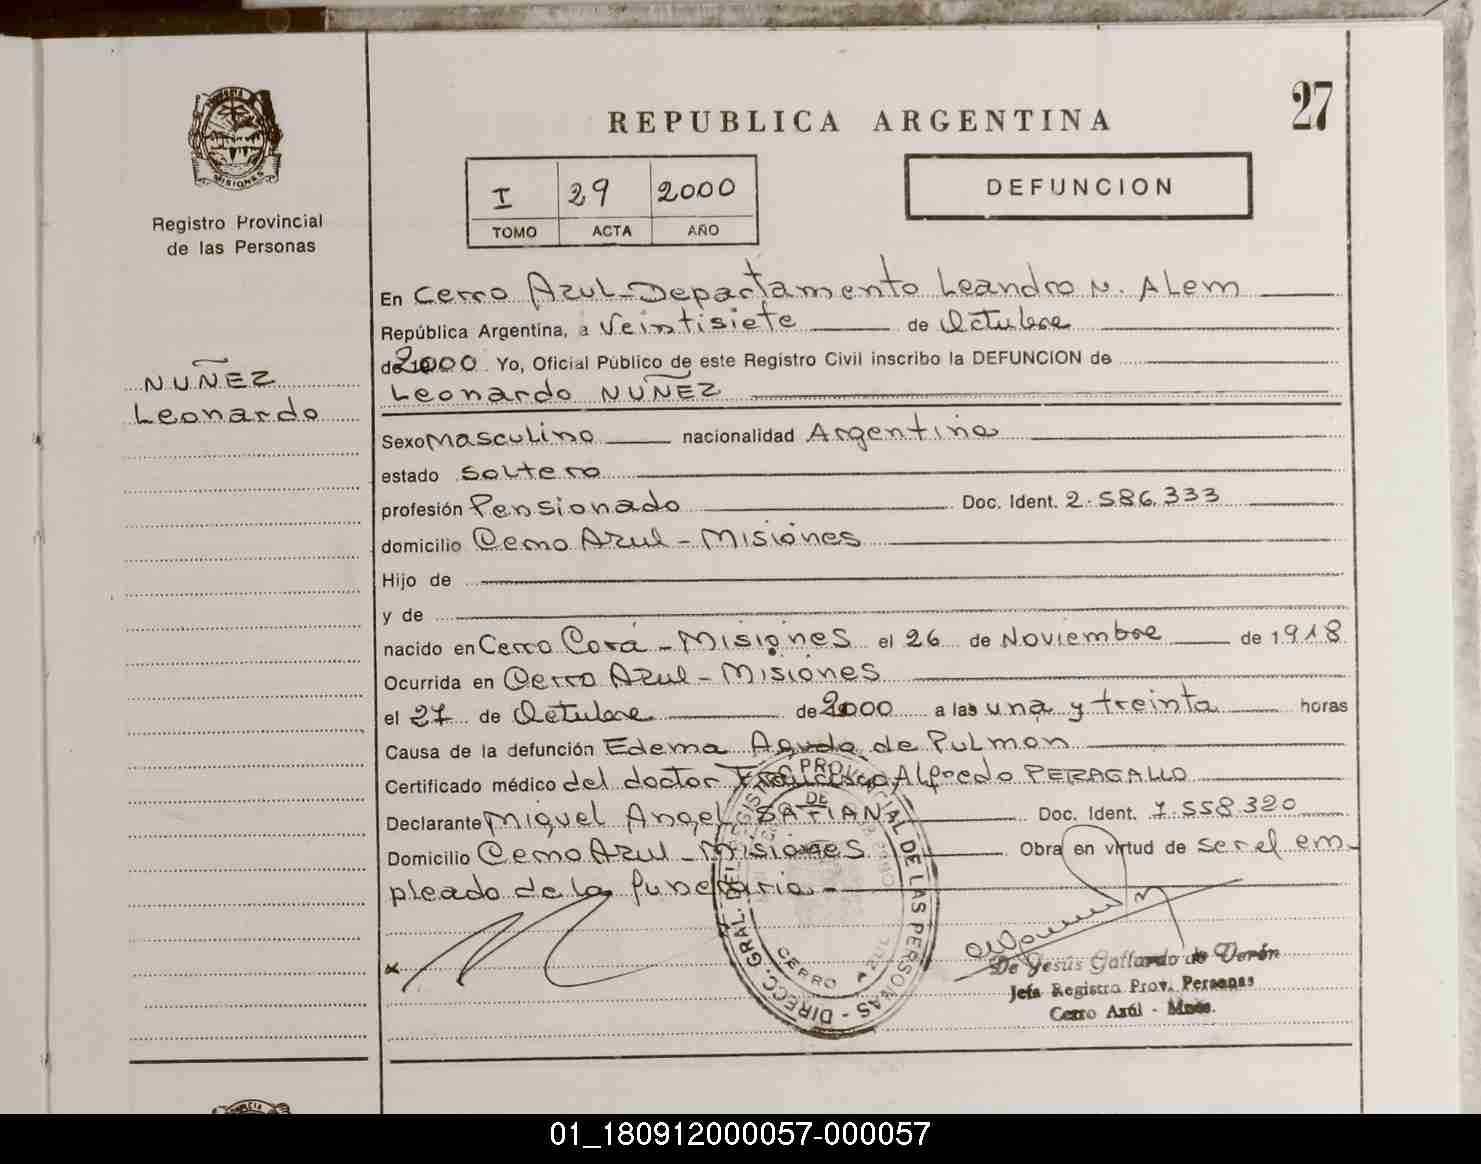 27
REPUBLICA ARGENTINA
PROVINCIA
MISIONES
Registro Provincial
de las Personas
I 29 2000
TOMO ACTA AÑO
DEFUNCION
NUÑEZ
Leonardo
En Cerro Azul-Departamento Leandro N. Alem
República Argentina, a Veintisiete de Octubre
de 2000 Yo, Oficial Público de este Registro Civil inscribo la DEFUNCION de
Leonardo NUÑEZ
Sexo Masculino nacionalidad Argentina
estado Soltero
profesión Pensionado Doc. Ident. 2.586.333
domicilio Cerro Azul - Misiones
Hijo de
y de
nacido en Cerro Corá - Misiones el 26 de Noviembre de 1918
Ocurrida en Cerro Azul - Misiones
el 27 de Octubre de 2000 a las una y treinta horas
Causa de la defunción Edema Agudo de Pulmon
Certificado médico del doctor Francisco Alfredo PERAGALLO
Declarante Miguel Angel Doc. Ident. 7.558.320
Domicilio Cerro Azul - Misiones Obra en virtud de ser el em-
pleado de la funeraria -
DIRECC. GRAL. DEL REGISTRO PROVINCIAL DE LAS PERSONAS -
DE
CERRO AZUL
De Jesús Gallardo de Verón
Jefa Registro Prov. Personas
Cerro Azúl - Mnes.
01_180912000057-000057